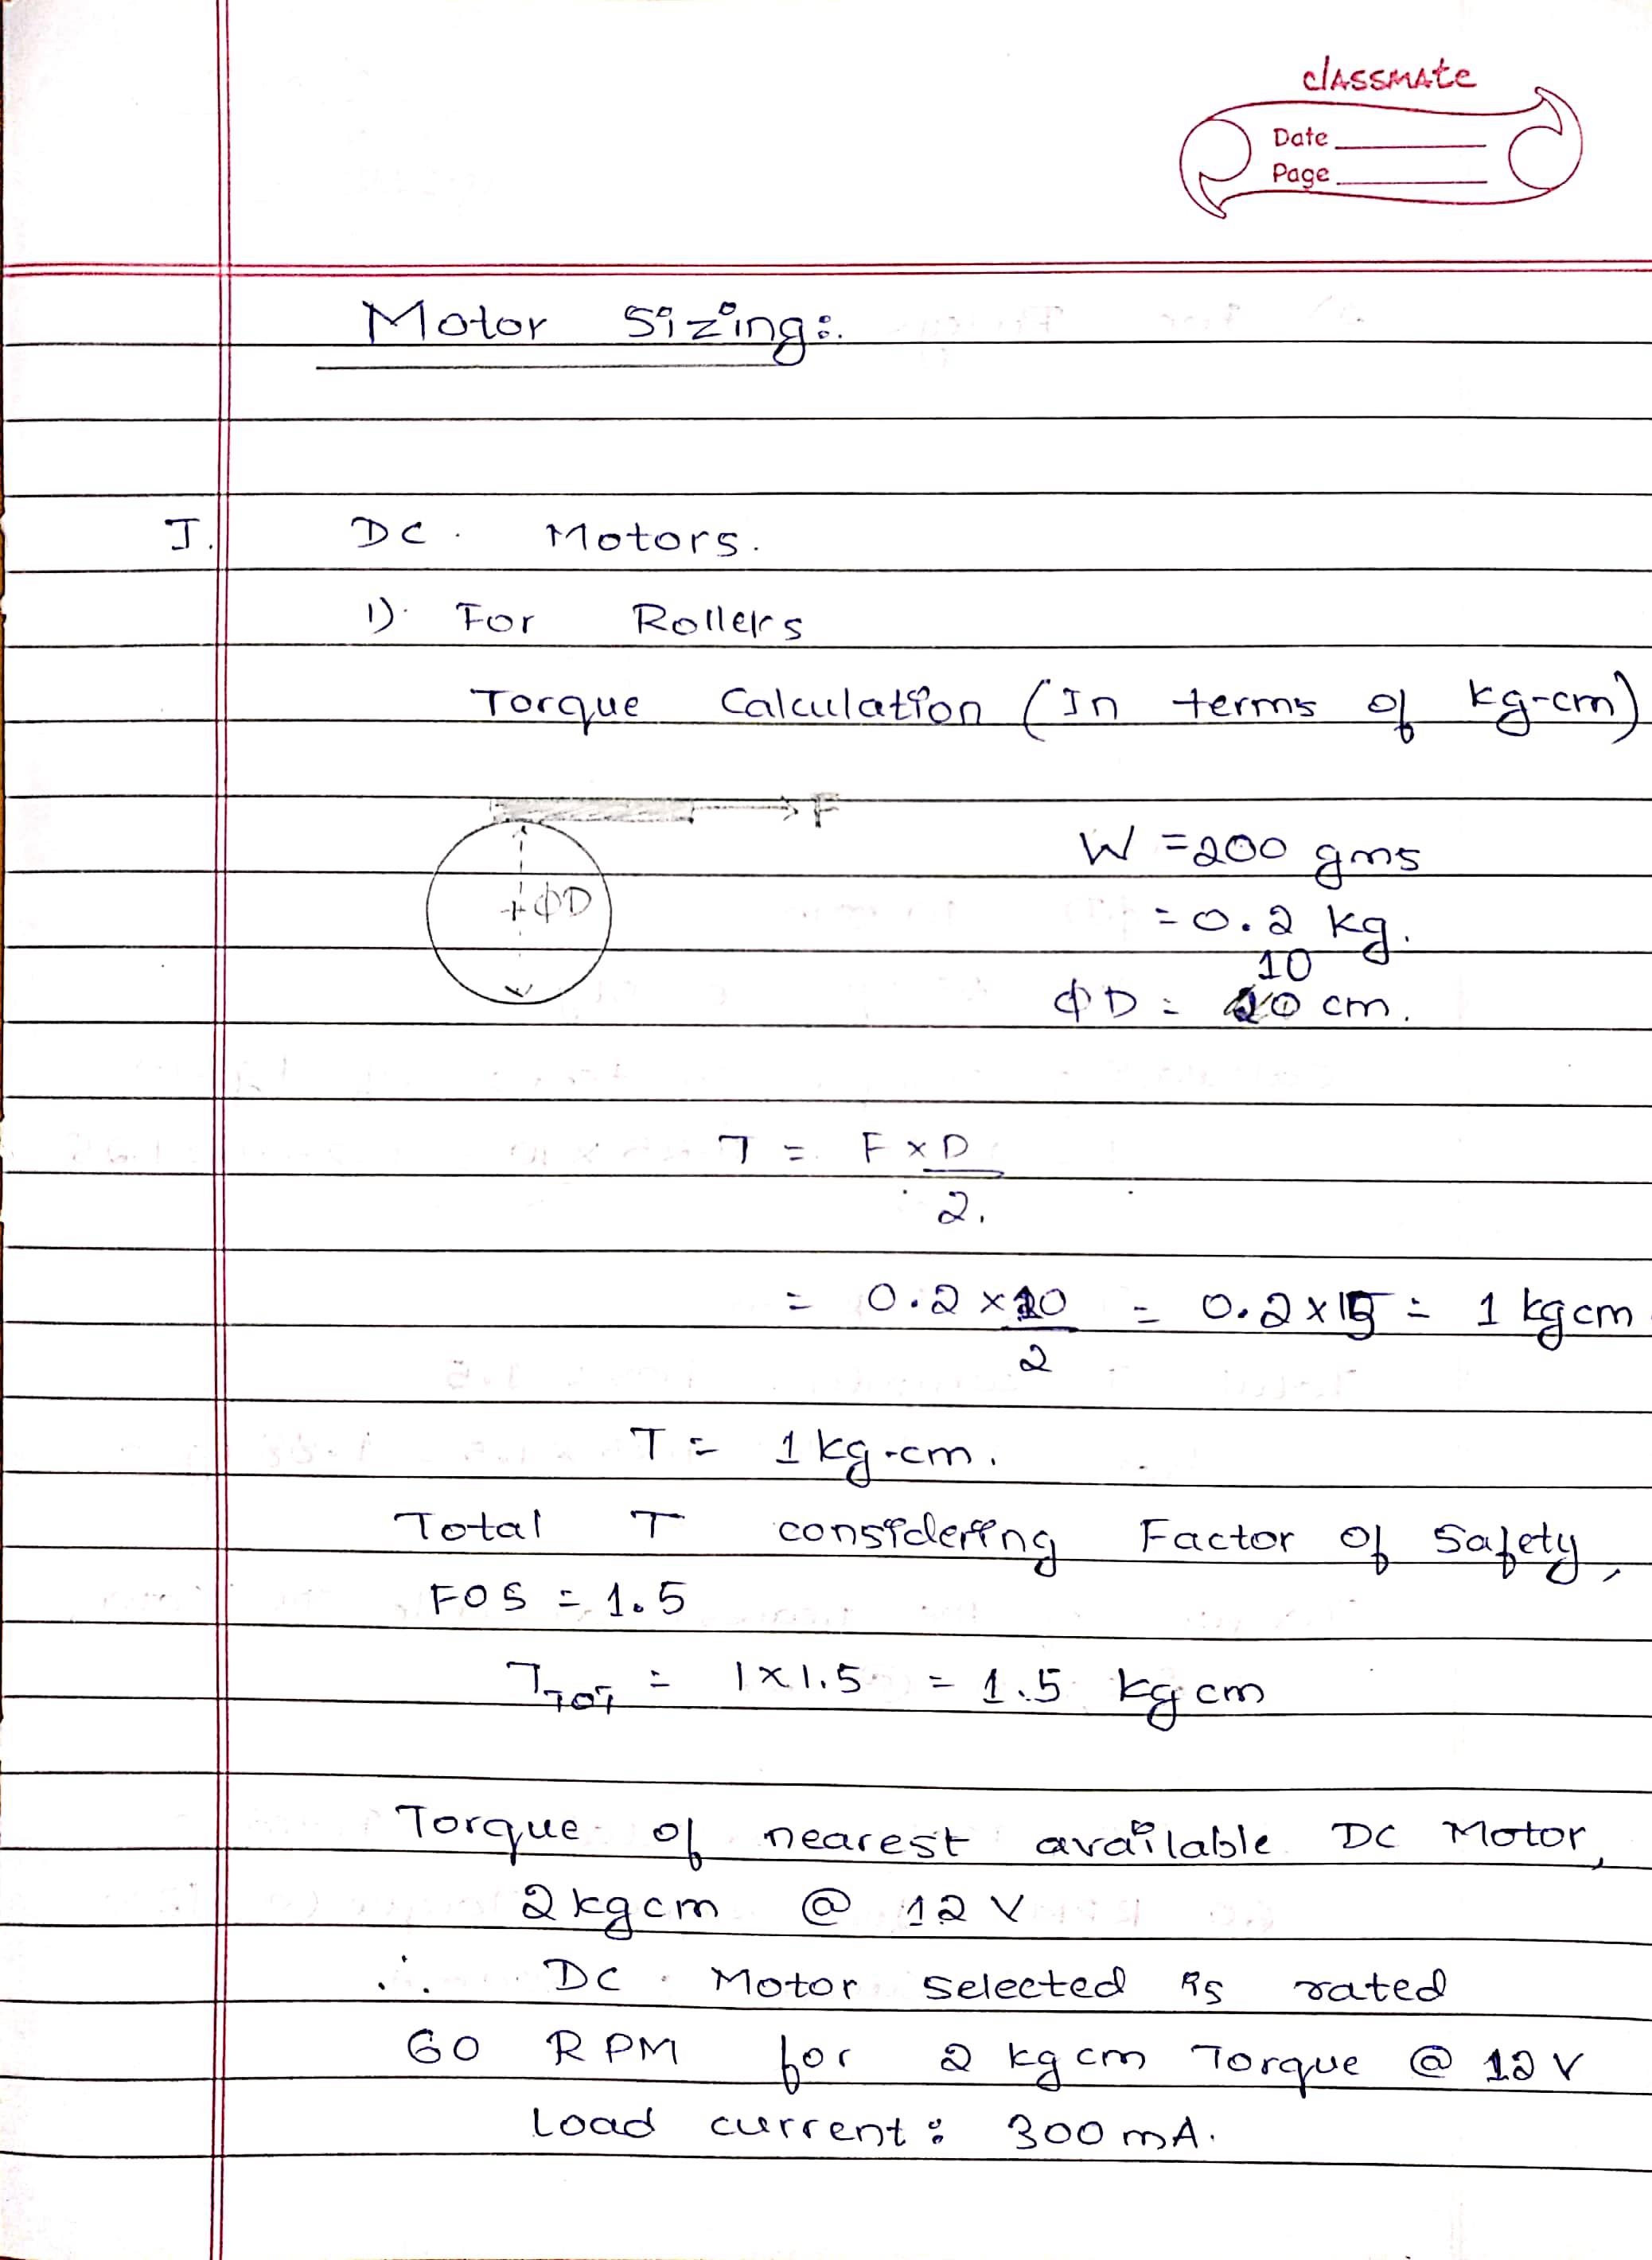 classmate
Date
Page
Motor Sizing:.
I. DC. Motors.
1). For Rollers
Torque Calculation (In terms of kg-cm)
F
W = 200 gms
+ ϕD
= 0.2 kg.
10
ϕD = cm.
T = F x D
2.
= 0.2 x 10 = 0.2 x 5 = 1 kgcm
2
T = 1 kg-cm.
Total T considering Factor of Safety,
FOS = 1.5
T_TOT = 1 x 1.5 = 1.5 kgcm
Torque of nearest available DC Motor,
2 kgcm @ 12 V
∴ DC Motor selected is rated
60 RPM for 2 kgcm Torque @ 12 V
Load current : 300 mA.